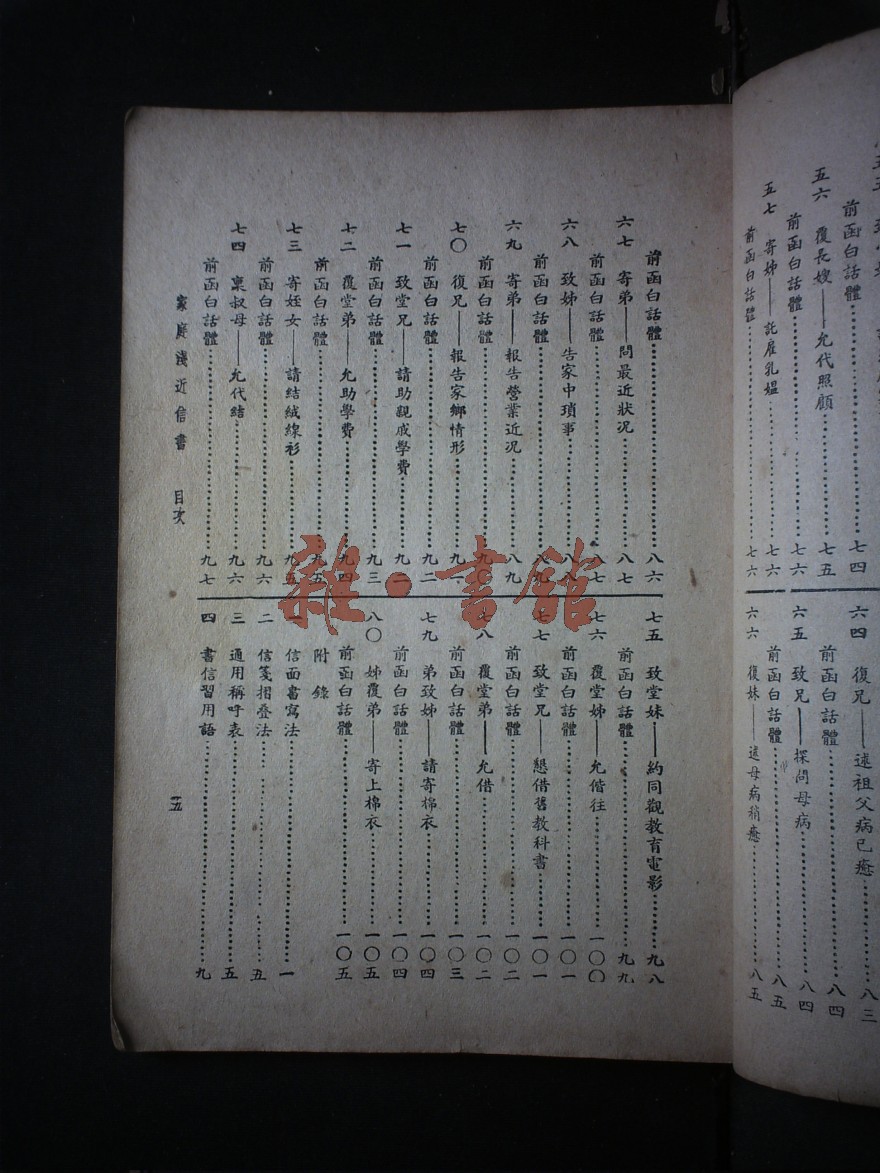 五六 覆長嫂——允代照顧……七五
前函白話體……七六
五七 寄姊——託雇乳媼……七六
前函白話體……七六
六四 復兄——述祖父病已癒……八三
前函白話體……八四
六五 致兄——探問母病……八四
前函白話體……八五
六六 復妹——述母病稍癒……八五
前函白話體……八六
六七 寄弟——問最近狀況……八七
前函白話體……八七
六八 致姊——告家中瑣事……八八
前函白話體……八九
六九 寄弟——報告營業近況……八九
前函白話體……九〇
七〇 復兄——報告家鄉情形……九一
前函白話體……九二
七一 致堂兄——請助親戚學費……九二
前函白話體……九三
七二 覆堂弟——允助學費……九四
前函白話體……九五
七三 寄姪女——請結絨線衫……九五
前函白話體……九六
七四 稟叔母——允代結……九六
前函白話體……九七
七五 致堂妹——約同觀教育電影……九八
前函白話體……九九
七六 覆堂姊——允偕往……一〇〇
前函白話體……一〇一
七七 致堂兄——懇借舊教科書……一〇一
前函白話體……一〇二
七八 覆堂弟——允借……一〇二
前函白話體……一〇三
七九 弟致姊——請寄棉衣……一〇四
前函白話體……一〇四
八〇 姊覆弟——寄上棉衣……一〇五
前函白話體……一〇五
附錄
一 信面書寫法……一
二 信箋摺疊法……五
三 通用稱呼表……五
四 書信習用語……九
家庭淺近信書 目次
五
雜·書館